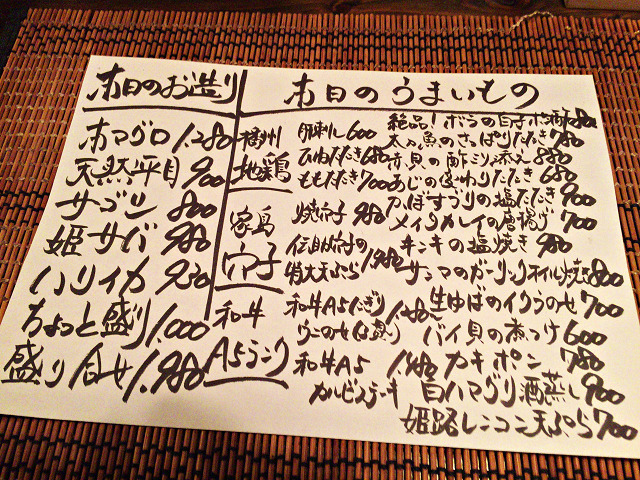 本日のお造り
本マグロ 1.280
天然平目 900
サゴシ 800
姫サバ 980
ハリイカ 930
ちょっと盛り 1.000
盛り合せ 1.980
本日のうまいもの
播州
地鶏
肝刺し 600
ひねたたき 680
ももたたき 700
家島
穴子
焼穴子 980
伝助穴子の
特大天ぷら 1.980
和牛
A5ランク
和牛A5にぎり
ウニのせ
和牛A5
カルビステーキ
絶品!ボラの白子ポン酢 880
太刀魚のさっぱりたたき 780
赤貝の酢ミソ添え 880
あじの変わりたたき 680
かぼすぶりの塩たたき 900
メイタカレイの唐揚げ 700
キンキの塩焼き 980
サンマのガーリックオイル焼き 800
生ゆばのイクラのせ 700
バイ貝の煮つけ 600
カキポン 780
白ハマグリ酒蒸し 900
姫路レンコン天ぷら 700